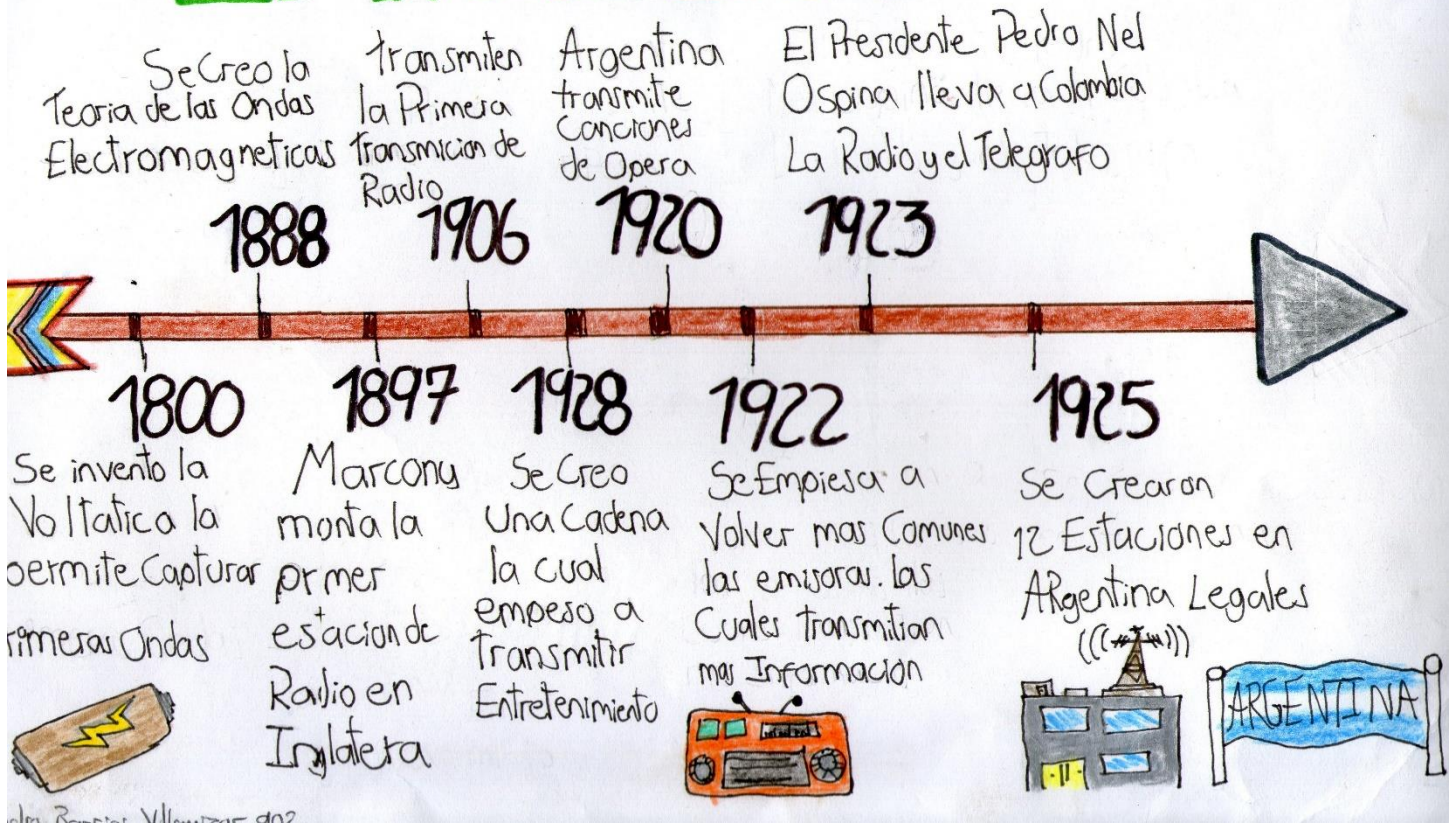 Se Creo la
Teoria de las Ondas
Electromagneticas
1888
transmiten
la Primera
Transmicion de
Radio
1906
Argentina
transmite
Canciones
de Opera
1920
El Presidente Pedro Nel
Ospina lleva a Colombia
La Radio y el Telegrafo
1923
1800
Se invento la
Voltatica la
permite Capturar
rimeras Ondas
1897
Marcony
monta la
prmer
estacion de
Radio en
Inglatera
1928
Se Creo
Una Cadena
la cual
empeso a
Transmitir
Entretenimiento
1922
Se Empiesa a
Volver mas Comunes
las emisoras. las
Cuales transmitian
mas Información
1925
Se Crearon
12 Estaciones en
ARgentina Legales
ARGENTINA
902